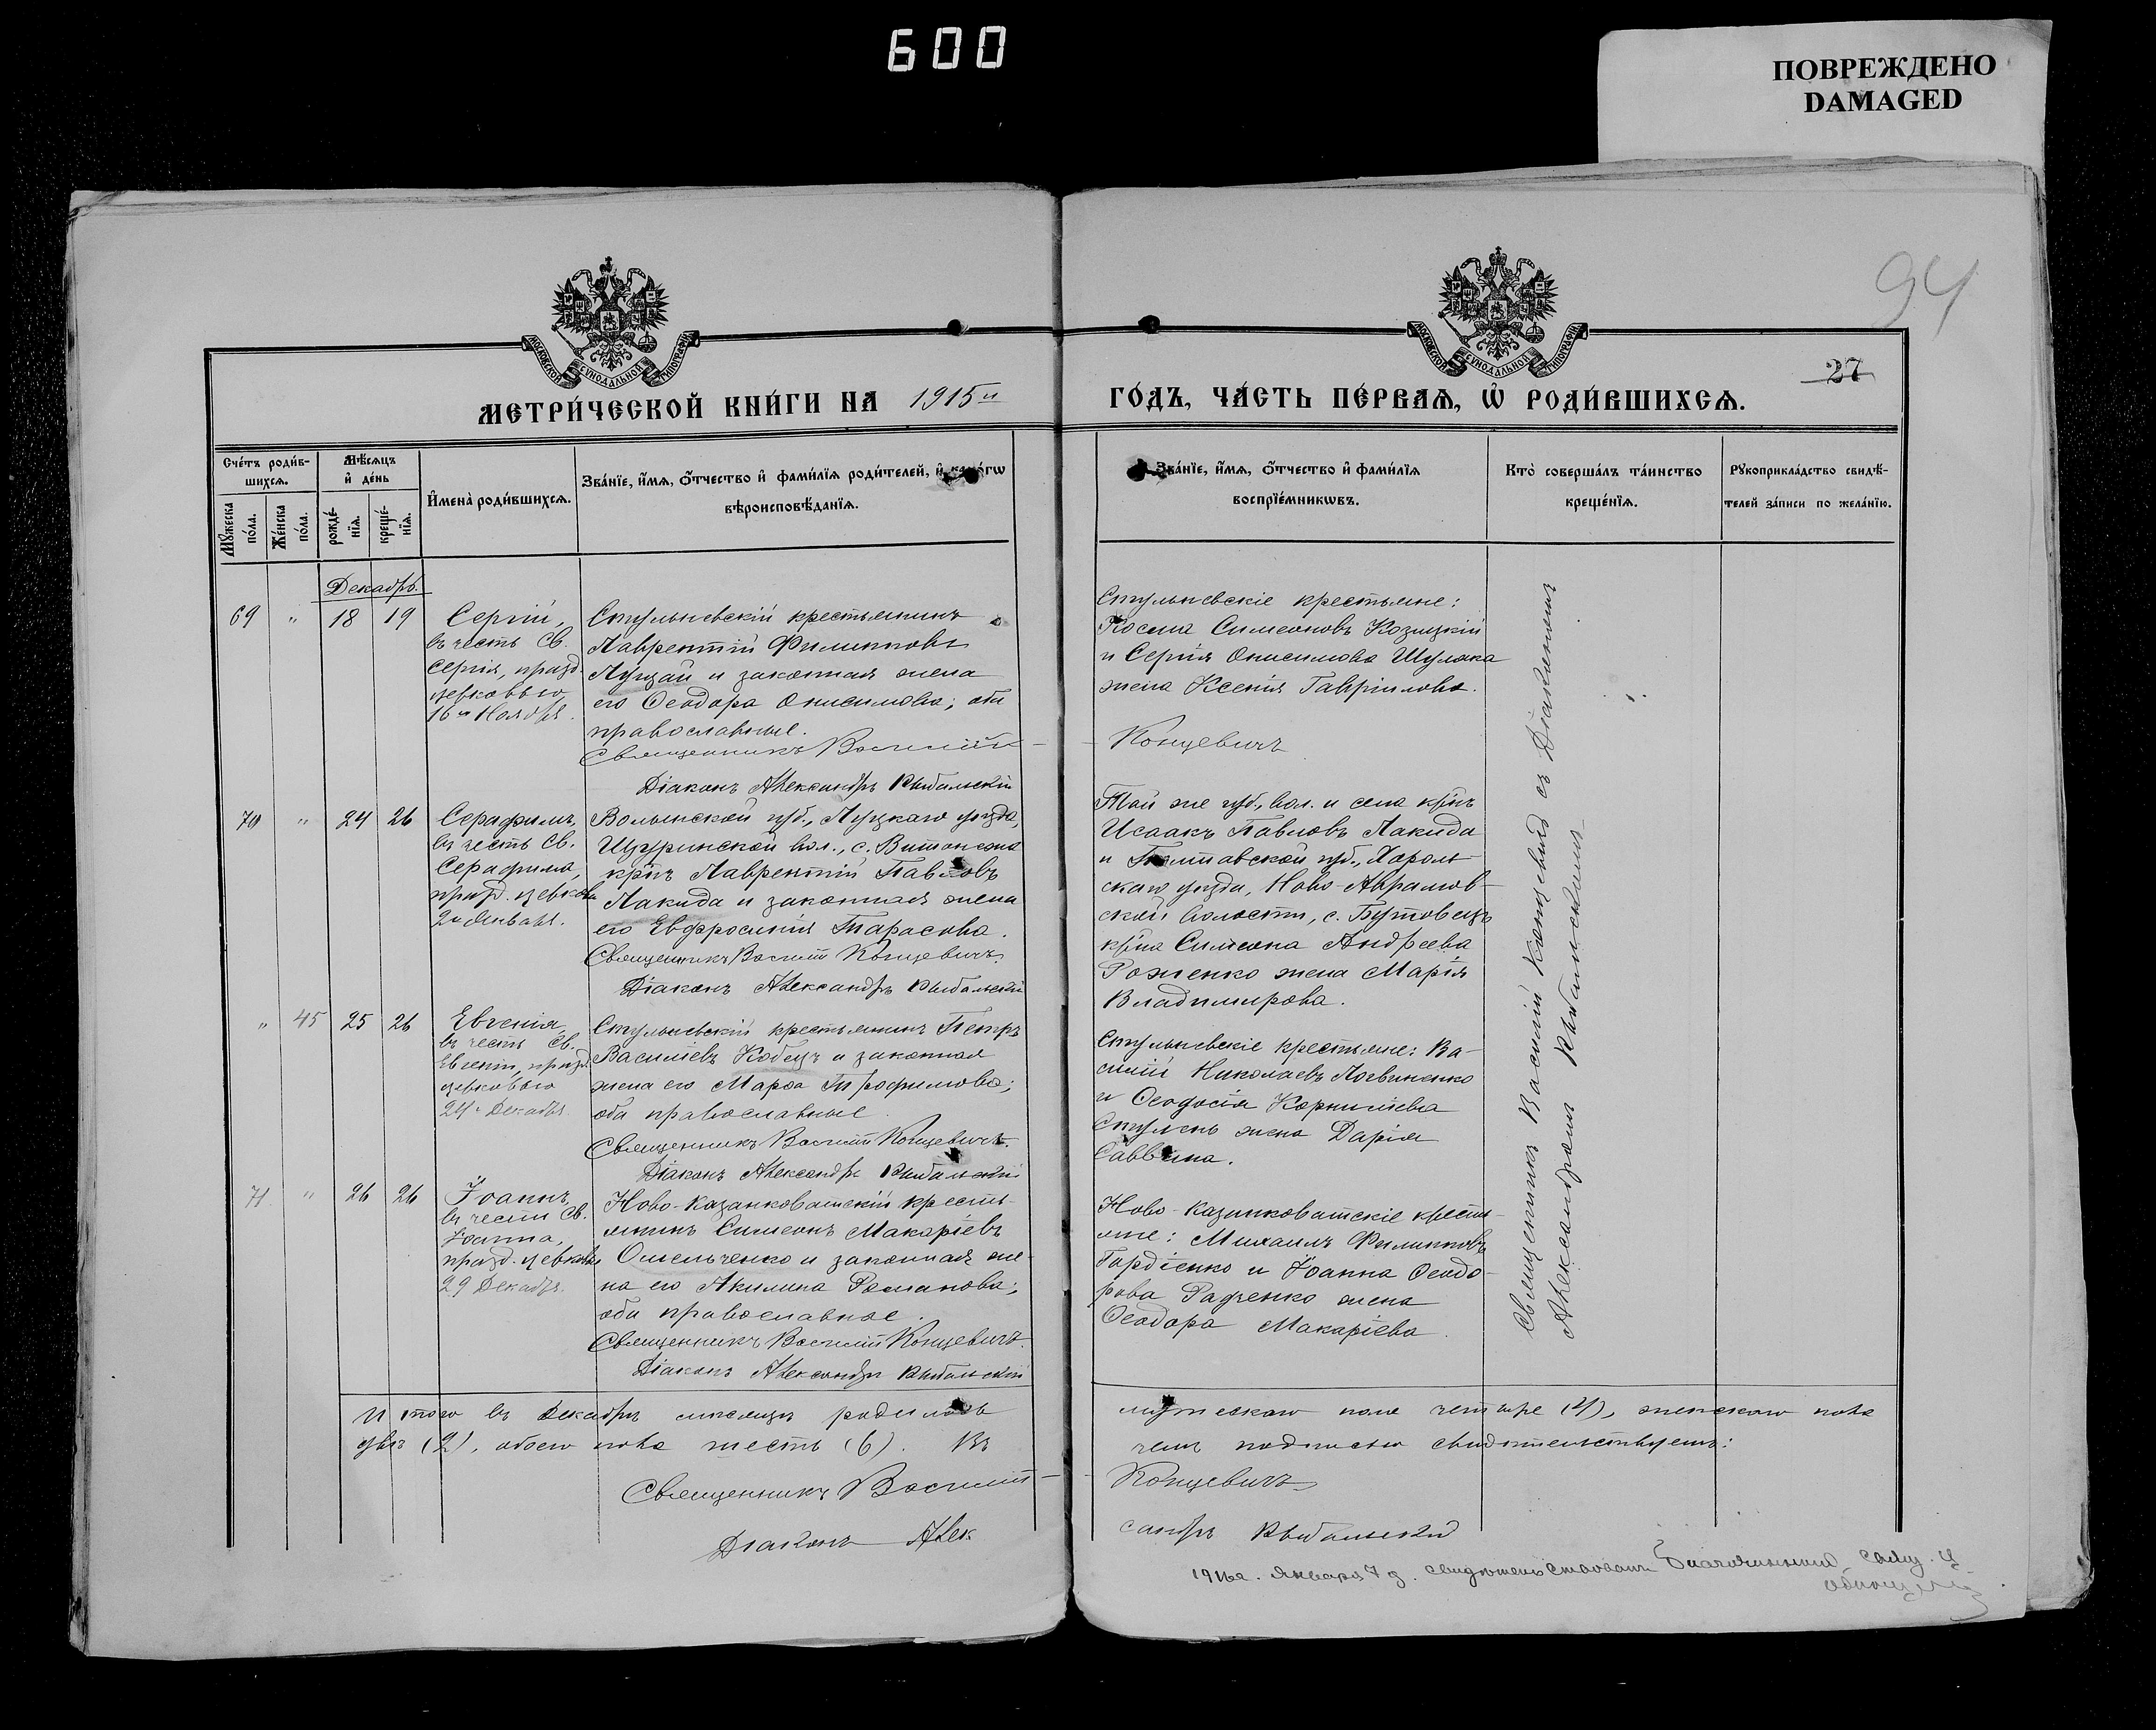 600
ПОВРЕЖДЕНО
DAMAGED
94
27
МЕТРИ́ЧЕСКОЙ КНИ́ГИ НА 1915й
ГО́ДЪ, ЧА́СТЬ ПЕ́РВАѦ, Ѡ҆ РОДИ́ВШИХСѦ.
МОСКОВСКОЙ СѴНОДАЛЬНОЙ ТИПОГРАФІИ
МОСКОВСКОЙ СѴНОДАЛЬНОЙ ТИПОГРАФІИ
Сче́тъ роди́в-
шихсѧ.
Мꙋ́жеска
по́ла.
Же́нска
по́ла.
Мѣ́сѧцъ
и҆ де́нь
рожде́-
нїѧ.
креще́-
нїѧ.
И҆мена̀ роди́вшихсѧ.
Зва́нїе, и҆́мѧ, о҆́тчество и҆ фами́лїѧ роди́телей, и҆ како́гѡ
вѣроисповѣ́данїѧ.
Зва́нїе, и҆́мѧ, о҆́тчество и҆ фами́лїѧ
воспрїе́мникѡвъ.
Кто̀ соверша́лъ та́инство
креще́нїѧ.
Рꙋкоприкла́дство свидѣ́-
телей за́писи по жела́нїю.
Декабрь.
69 " 18 19
Сергій,
въ честь Св.
Сергія, празд.
церковью
16го Ноября.
крестьянинъ
Лаврентій Филипповъ
и законная жена
его Ѳеодора Онисимова; оба
православные.
Священникъ Василій
Діаконъ Александръ Рыбальскій
крестьяне:
Косма Симеоновъ Козицкій
и Сергія Онисимова Шуляка
жена Ксенія Гавріилова.
Концевичъ
70 " 24 26
Серафимъ,
въ честь Св.
Серафима,
празд. церковью
2го Января.
Волынской губ., Луцкаго уѣзда,
Щуринской вол., с.
кр-нъ Лаврентій Павловъ
Лакида и законная жена
его Евфросинія Тарасова.
Священникъ Василій Концевичъ.
Діаконъ Александръ Рыбальскій
Той же губ., вол. и села кр-нъ
Исаакъ Павловъ Лакида
и Полтавской губ., Хороль-
скаго уѣзда, Ново-Аврамов-
ской волости, с.
кр-на Симеона Андреева
Роженко жена Марія
Владимирова.
" 45 25 26
Евгенія,
въ честь Св.
Евгеніи, празд.
церковью
24го Декабря.
крестьянинъ Петръ
Василіевъ Кобецъ и законная
жена его Марѳа Трофимова;
оба православные.
Священникъ Василій Концевичъ.
Діаконъ Александръ Рыбальскій
крестьяне: Ва-
силій Николаевъ Логвиненко
и Ѳеодосія Корниліева
жена Дарія
Саввина.
71 " 26 26
Іоаннъ,
въ честь Св.
Іоанна,
празд. церковью
29 Декабря.
Ново-Казанковатскій кресть-
янинъ Симеонъ Макаріевъ
Омельченко и законная же-
на его Акилина Романова;
оба православные.
Священникъ Василій Концевичъ.
Діаконъ Александръ Рыбальскій
Ново-Казанковатскіе кресть-
яне: Михаилъ Филипповъ
Гордіенко и Іоанна Ѳеодо-
рова Радченко жена
Ѳеодора Макаріева.
Священникъ Василій Концевичъ съ Діакономъ
Александромъ Рыбальскимъ
Итого въ Декабрѣ мѣсяцѣ родилось
мужескаго пола четыре (4), женскаго пола
двѣ (2), обоего пола шесть (6). Въ
чемъ подписью свидѣтельствуемъ:
Священникъ Василій
Концевичъ
Діаконъ Алек
сандръ Рыбальскій
1916 г. Января 7 д. свидѣтельствовалъ Благочинный